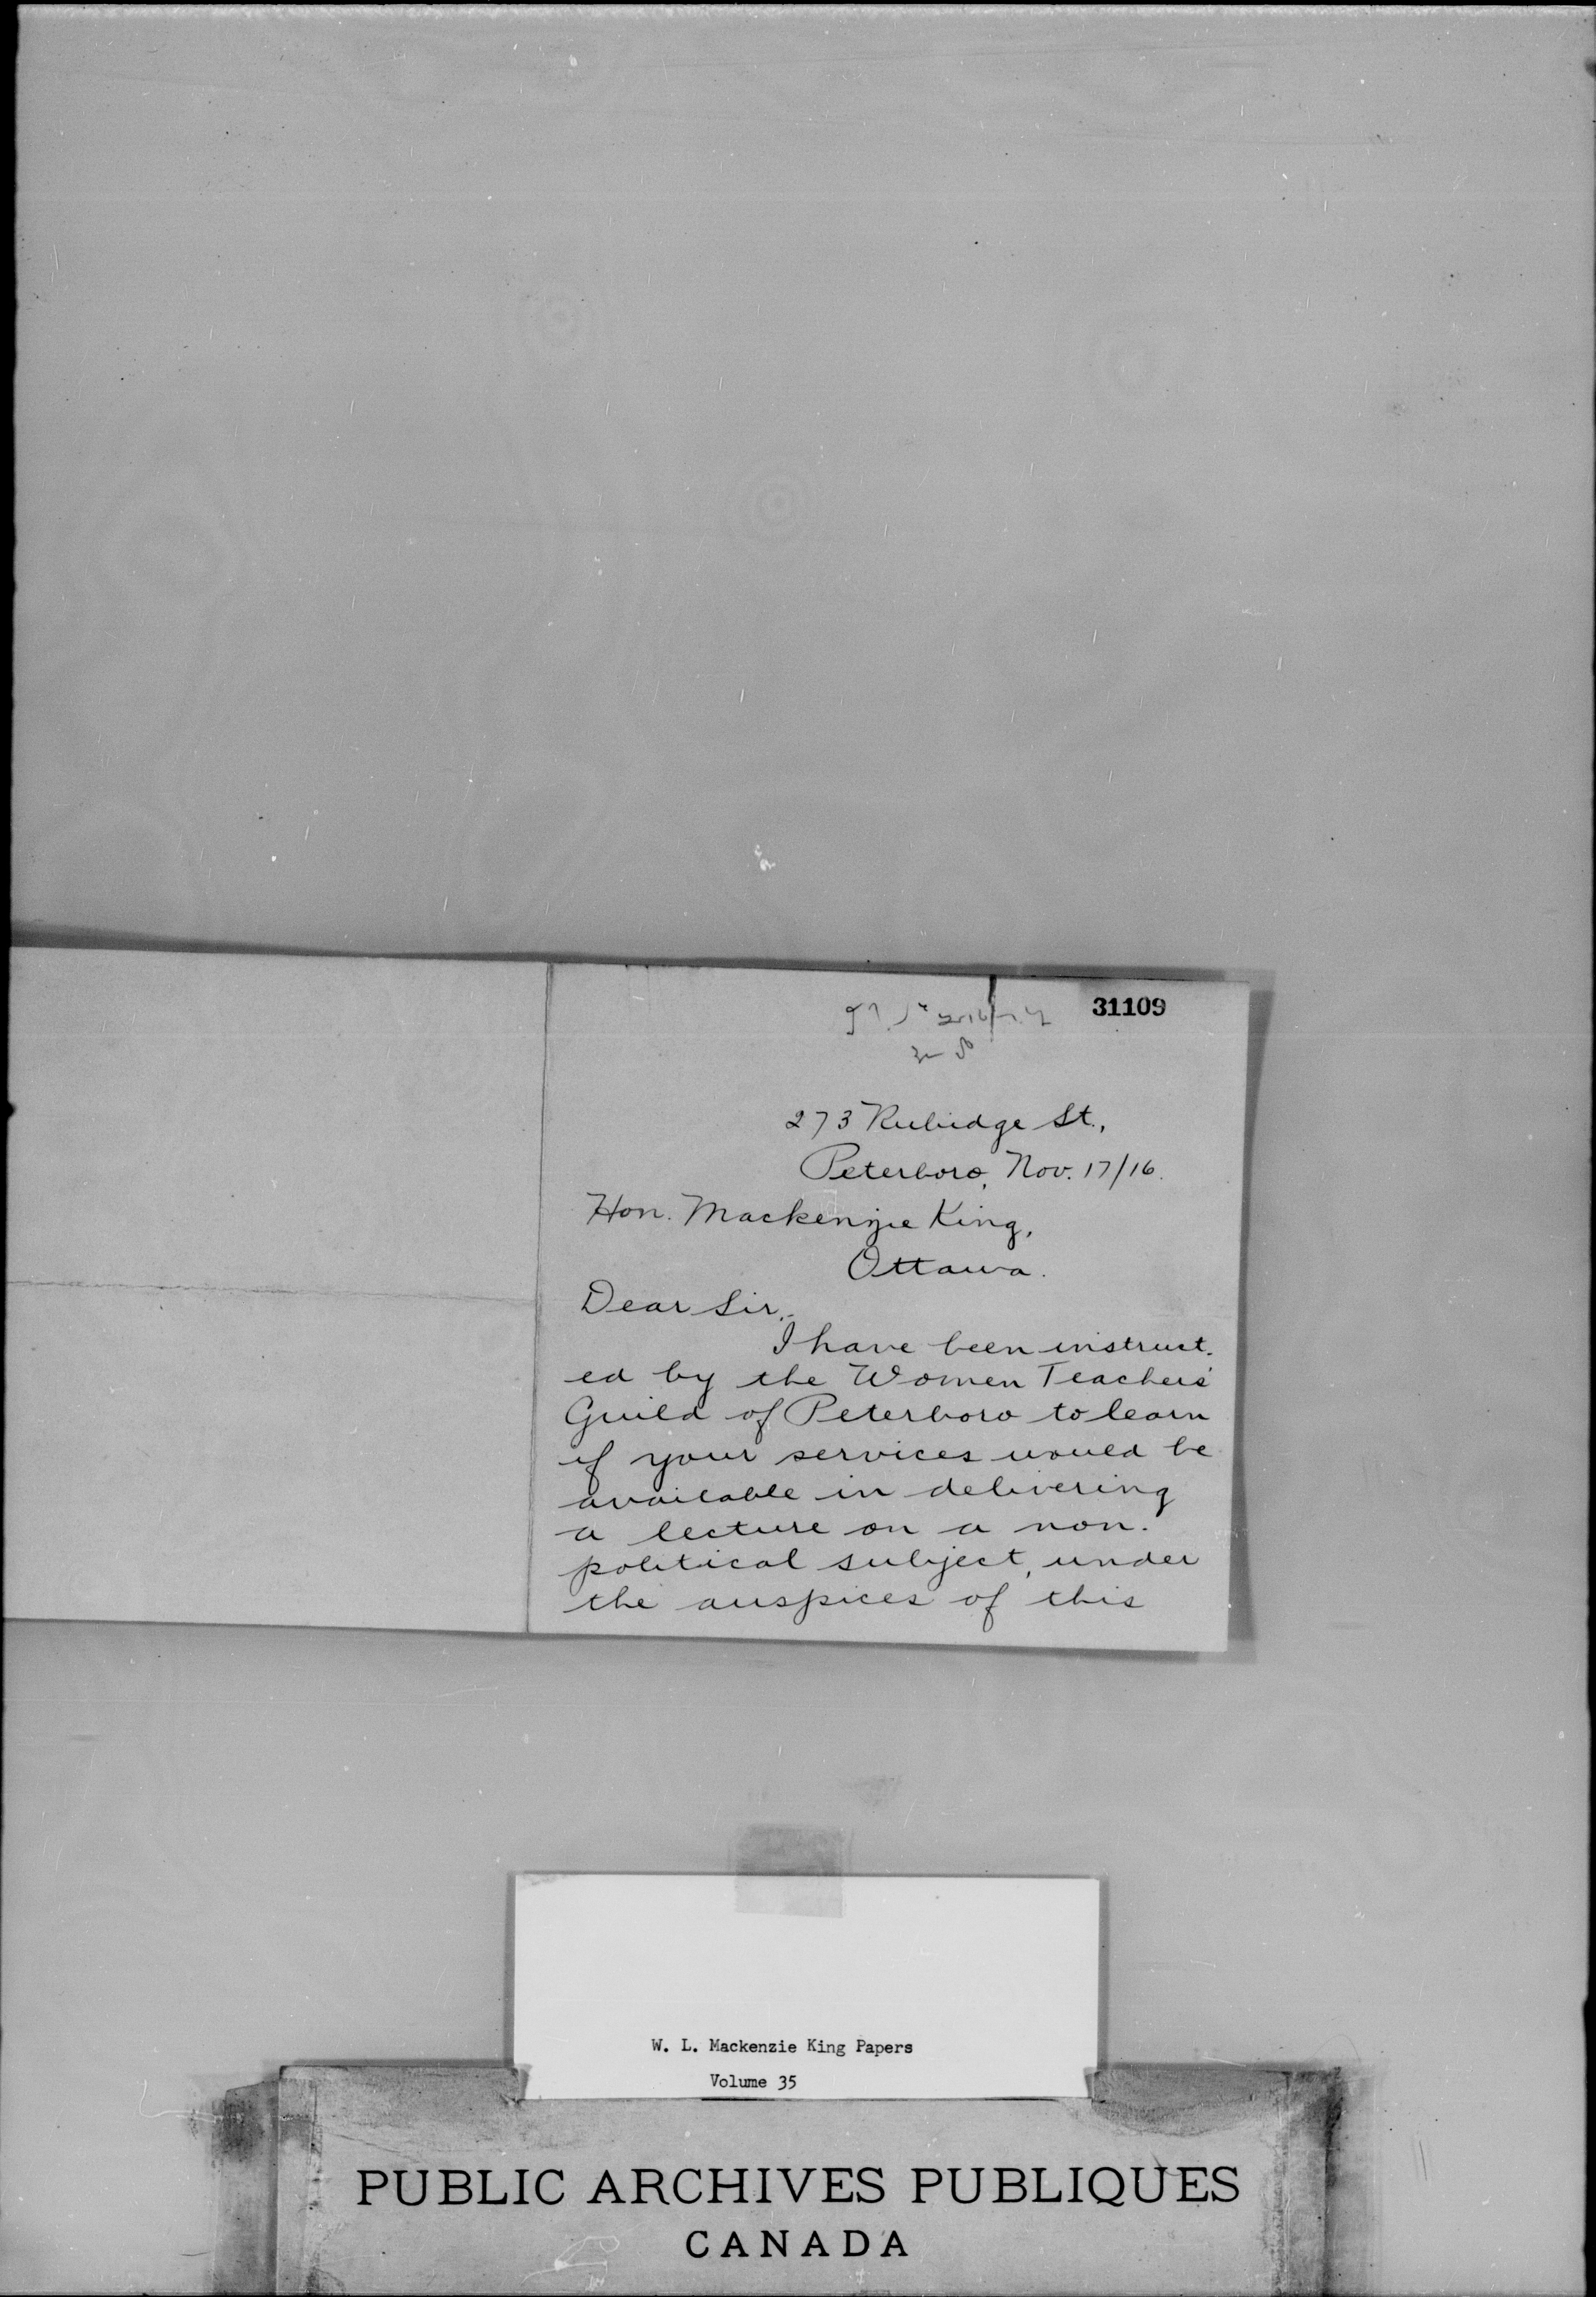 31109
273 Rubidge St.,
Peterboro, Nov. 17/16.
Hon. Mackenzie King,
Ottawa.
Dear Sir,-
I have been instruct-
ed by the Women Teachers'
Guild of Peterboro to learn
if your services would be
available in delivering
a lecture on a non-
political subject, under
the auspices of this
W. L. Mackenzie King Papers
Volume 35
PUBLIC ARCHIVES PUBLIQUES
CANADA